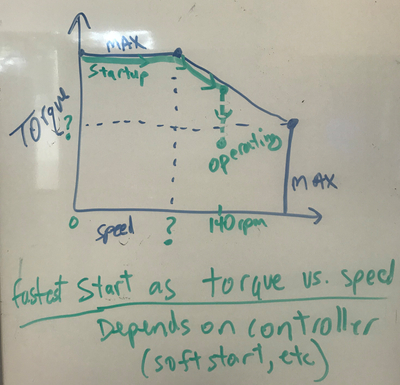 MAX
startup
Torque
?
operating
MAX
0
speed
?
140rpm
fastest start as torque vs. speed
Depends on controller
(soft start, etc)